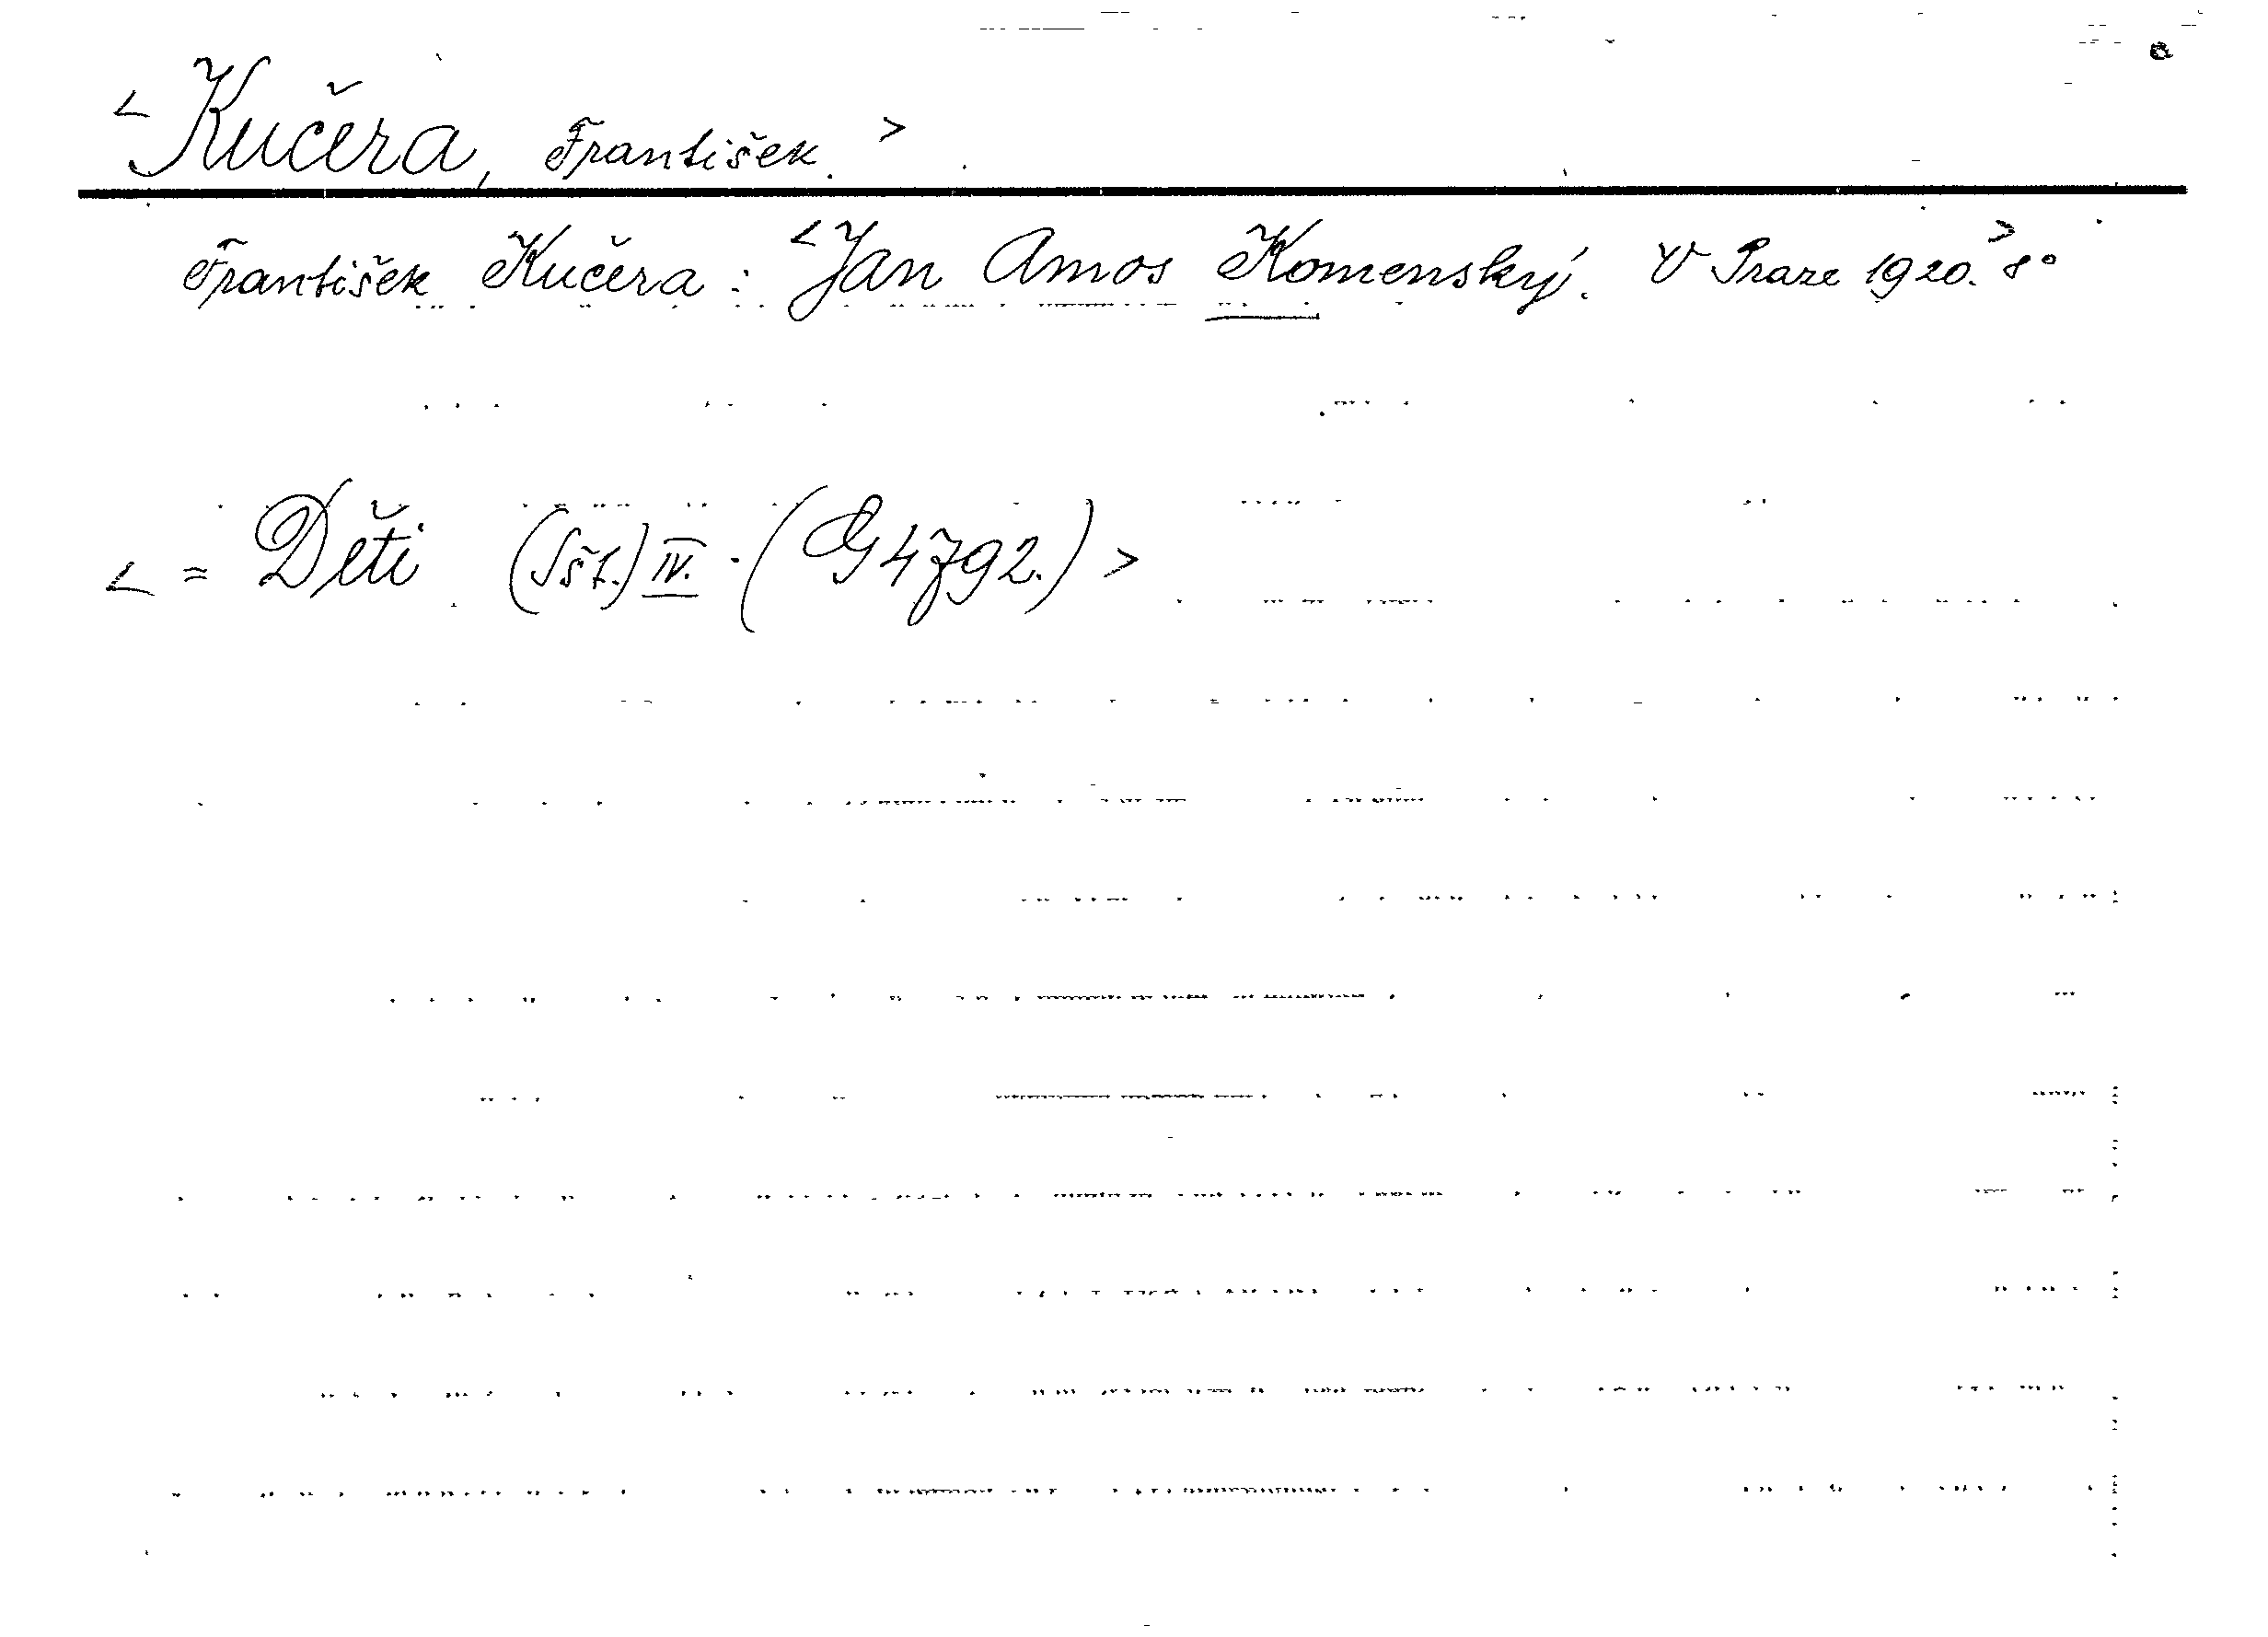 < Kučera, František. >
František Kučera: < Jan Amos Komenský. V Praze 1920. > 8°
< = Děti (Sšt.) IV. · (G 4792.) >